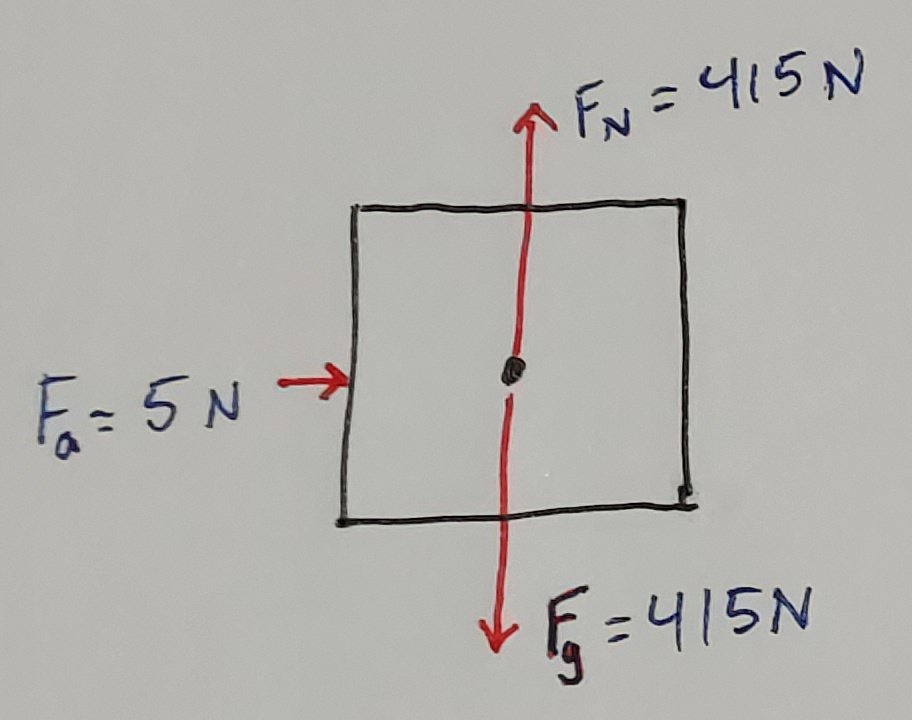 F_N = 415 N
F_a = 5 N
F_g = 415N